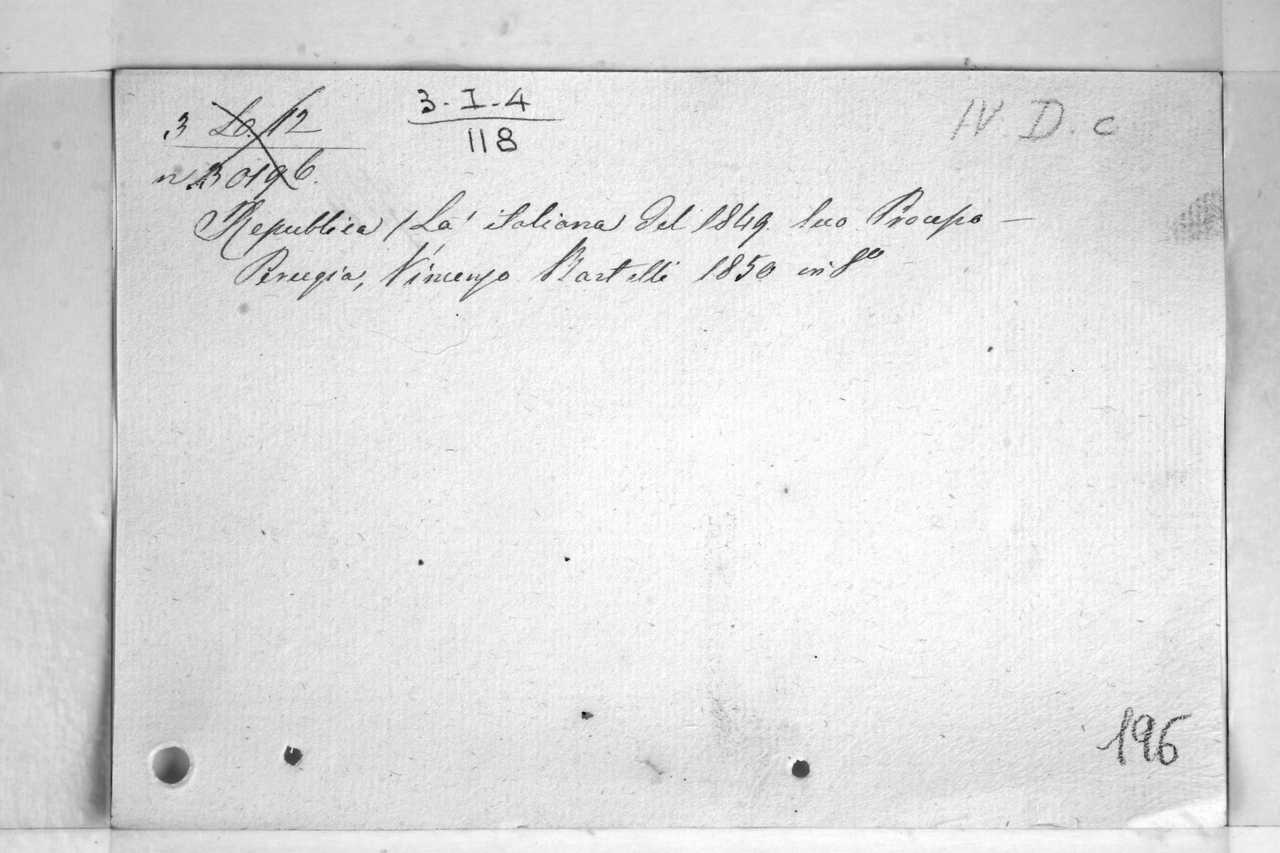 3 Lo. 12
n B 0196.
3. I. 4
118
IV D. c
Republica (La) italiana del 1849. suo Processo –
Perugia, Vincenzo Bartelli 1850 in 8º
196